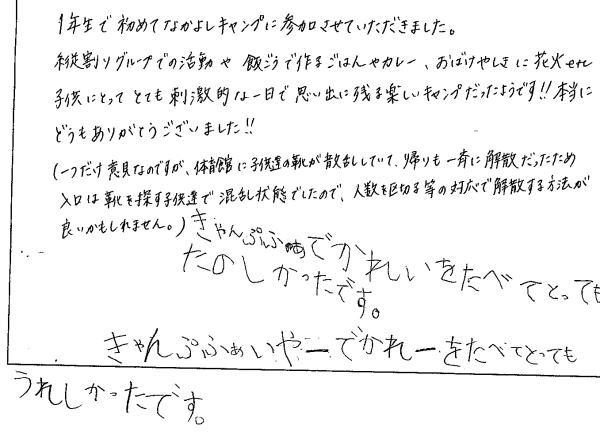 1年生で初めてなかよしキャンプに参加させていただきました。
縦割りグループでの活動や飯ごうで作るごはんやカレー、おばけやしきに花火etc
子供にとってとても刺激的な一日で思い出に残る楽しいキャンプだったようです!!本当に
どうもありがとうございました!!
(一つだけ意見なのですが、体育館に子供達の靴が散乱していて、帰りも一斉に解散だったため
入口は靴を探す子供達で混乱状態でしたので、人数を区切る等の対応で解散する方法が
良いかもしれません。)
きゃんぷふぁでかれしいをたべてとっても
たのしかったです。
きゃんぷふぁいやーでかれーをたべてとっても
うれしかったです。